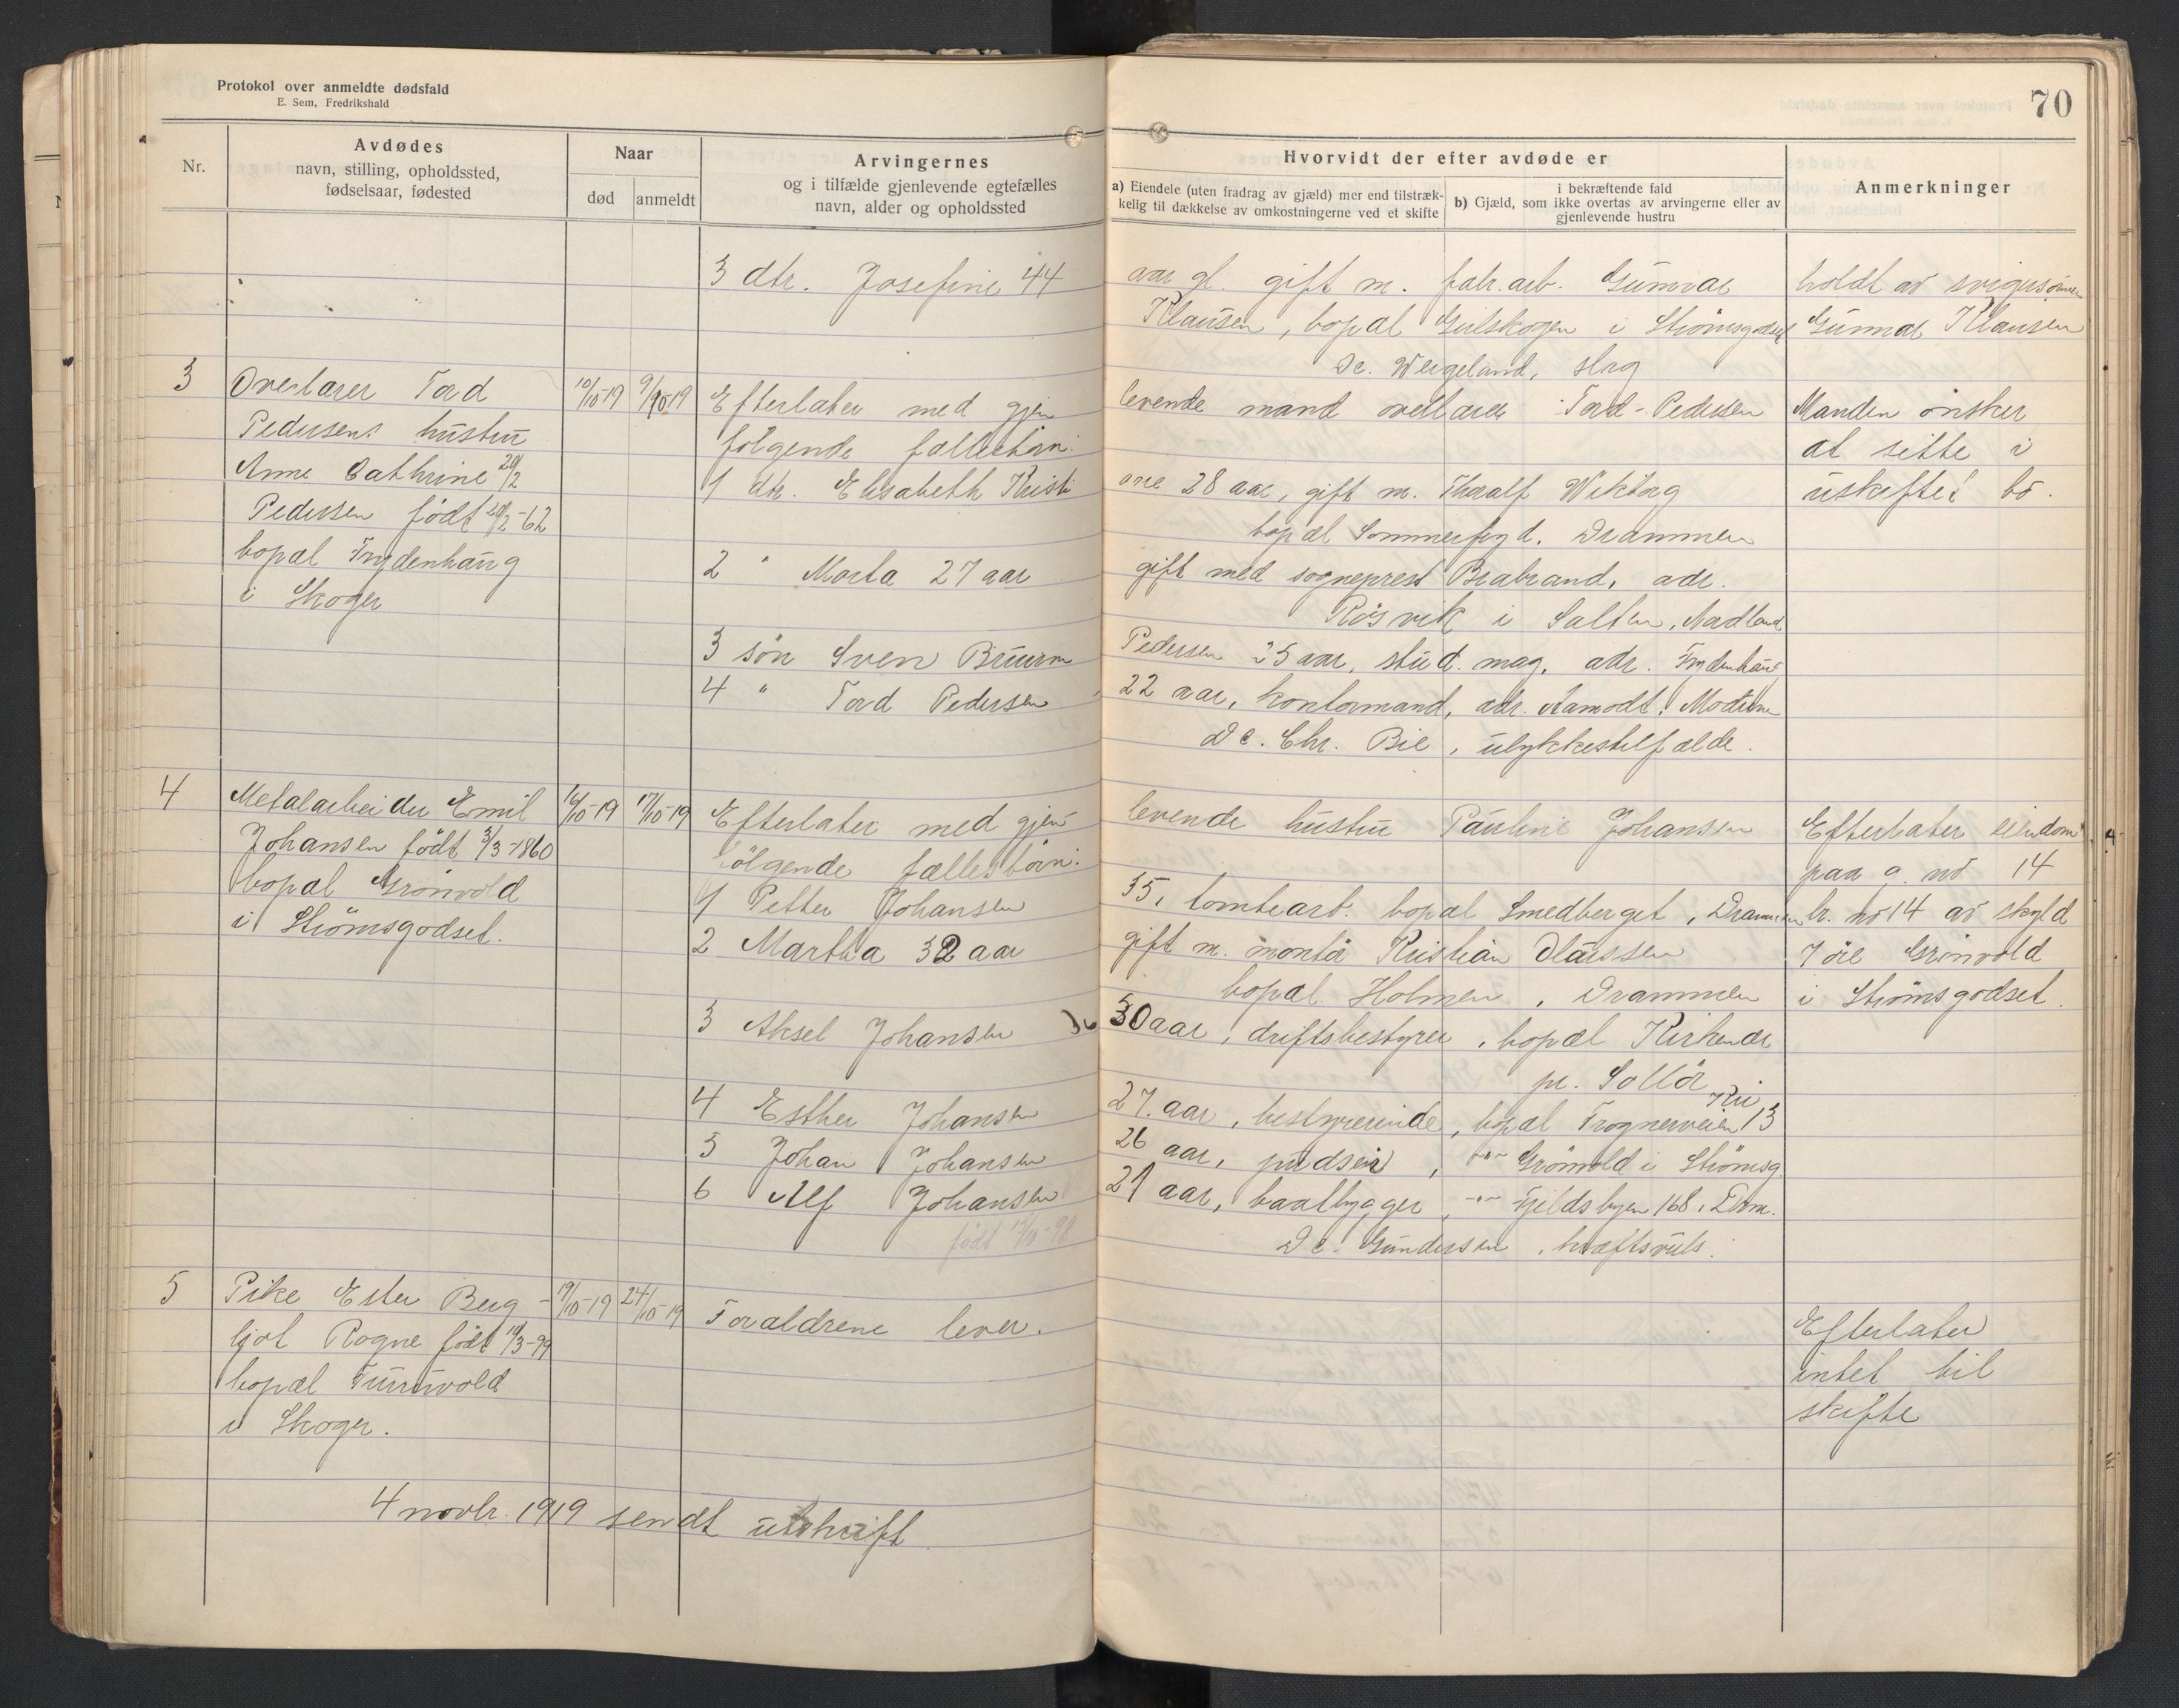 Protokol over anmeldte dødsfald
E. Sem, Fredrikshald
70
Nr.
Avdødes
navn, stilling, opholdssted,
fødselsaar, fødested
Naar
død
anmeldt
Arvingernes
og i tilfælde gjenlevende egtefælles
navn, alder og opholdssted
Hvorvidt der efter avdøde er
a) Eiendele (uten fradrag av gjæld) mer end tilstræk-
kelig til dækkelse av omkostningerne ved et skifte
i bekræftende fald
b) Gjæld, som ikke overtas av arvingerne eller av
gjenlevende hustru
Anmerkninger
3 dtr. Josefine 44 aar gl. gift m. fabr. arb. Gunnar
Klausen, bopæl Gulskogen i Strømsgodset
Dc. Wergeland, slag
holdt av svigersønnen
Gunnar Klausen
3
Overlærer Tord
Pedersens hustru
Anne Cathrine 20/2
Pedersen født 20/2-62
bopæl Frydenhaug
i Skoger
10/10-19 9/10-19
Efterlater med gjenlevende mand overlærer Tord Pedersen
følgende fællesbørn:
1 dtr. Elisabeth Kristiane 28 aar, gift m. Thoralf Wiktorg
bopæl Sommerfryd. Drammen
2 " Marta 27 aar gift med sogneprest Brabrand, adr.
Røsvik i Salten, Nordland
3 søn Sven Bruun Pedersen 25 aar, stud. mag. adr. Frydenhaug
4 " Tord Pedersen 22 aar, kontormand, adr. Aamodt, Modum
Dc. Chr. Bie, ulykkestilfælde.
Manden ønsker
at sitte i
uskiftet bo.
4
Metalarbeider Emil
Johansen født 3/3-1860
bopæl Grønvold
i Strømsgodset.
16/10-19 17/10-19
Efterlater med gjenlevende hustru Pauline Johansen
følgende fællesbørn:
1 Petter Johansen 35, tomtearb. bopæl Smedberget, Drammen
2 Martha 32 aar gift m. montør Kristian Olaussen
bopæl Holmen, Drammen
3 Aksel Johansen 30 aar, driftsbestyrer, bopæl Kirkenær
pr. Solør
4 Esther Johansen 27 aar, bestyrerinde, bopæl Frognerveien 13 Kri
5 Johan Johansen 26 aar, pudser, -"- Grønvold i Strømsg.
6 Alf Johansen 21 aar, baatbygger, -"- Tjeldsbyen 168, Drm.
Dc. Gundersen, kræftsvuls.
Efterlater eiendom
paa g. no 14
br. no 14 av skyld
7 øre Grønvold
i Strømsgodset.
5
Pike Ester Berg-
ljot Rogne født 10/3-99
bopæl Tuenvold
i Skoger.
19/10-19 24/10-19
Forældrene lever.
Efterlater
intet til
skifte
4 novbr. 1919 sendt utskrift.